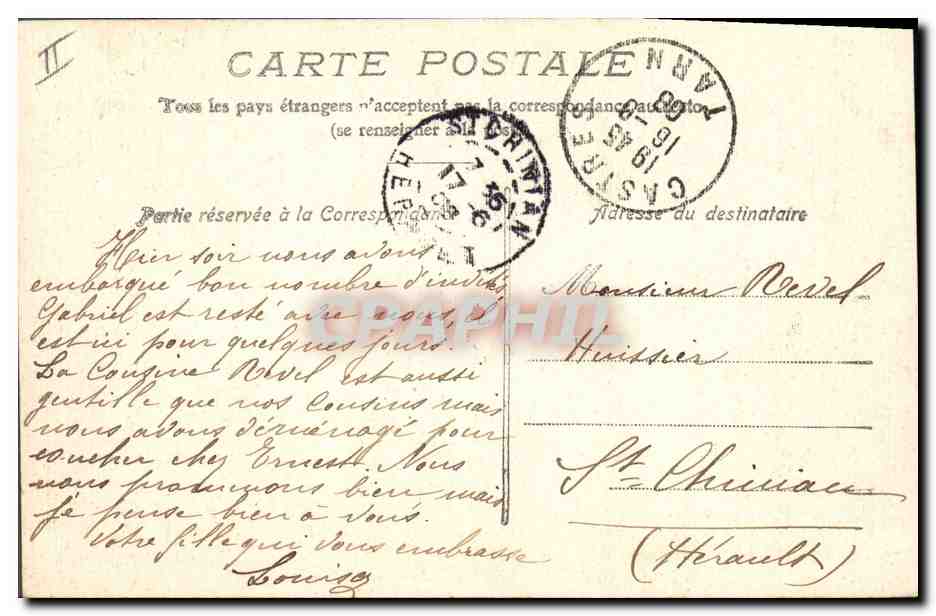 II
CARTE POSTALE
Tous les pays étrangers n'acceptent pas la correspondance au recto
(se renseigner à la poste
CASTRES
TARN
19 45
16 - 6
08
ST CHINIAN
HERAULT
7 36
17 - 6
08
Partie réservée à la Correspondance
Adresse du destinataire
Hier soir nous avons
embarqué bon nombre d'invités
Gabriel est resté avec nous, il
est ici pour quelques jours.
La Cousine Revel est aussi
gentille que nos cousins mais
nous avons déménagé pour
coucher chez Ernest. Nous
nous promenons bien mais
je pense bien à vous.
Votre fille qui vous embrasse
Louise
Monsieur Revel
Huissier
St Chinian
(Hérault)
CPAPHIL